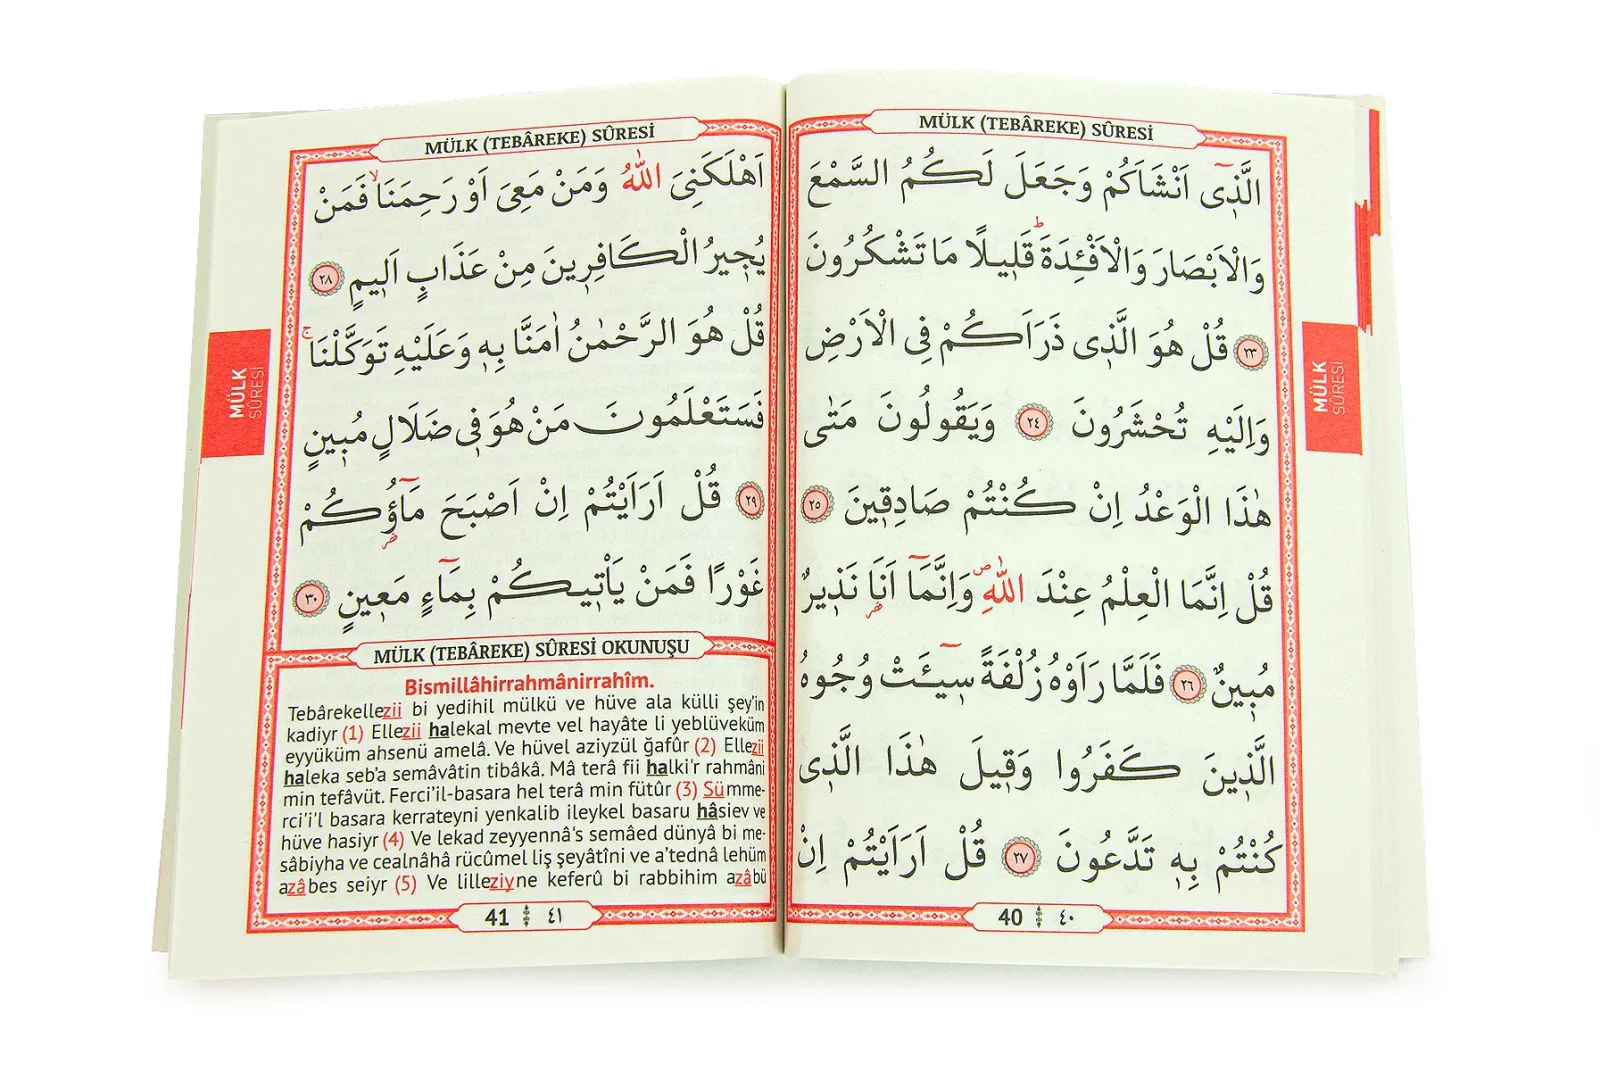 MÜLK (TEBÂREKE) SÛRESİ
الَّذ۪ٓى اَنْشَاَكُمْ وَجَعَلَ لَكُمُ السَّمْعَ
وَالْاَبْصَارَ وَالْاَفْـِٔدَةَۜ قَل۪يلًا مَا تَشْكُرُونَ
﴿٢٣﴾ قُلْ هُوَ الَّذ۪ى ذَرَاَكُمْ فِى الْاَرْضِ
وَاِلَيْهِ تُحْشَرُونَ ﴿٢٤﴾ وَيَقُولُونَ مَتٰى
هٰذَا الْوَعْدُ اِنْ كُنْتُمْ صَادِق۪ينَ ﴿٢٥﴾
قُلْ اِنَّمَا الْعِلْمُ عِنْدَ اللّٰهِۖ وَاِنَّمَٓا اَنَا۬ نَذ۪يرٌ
مُب۪ينٌ ﴿٢٦﴾ فَلَمَّا رَاَوْهُ زُلْفَةً س۪ٓيـَٔتْ وُجُوهُ
الَّذ۪ينَ كَفَرُوا وَق۪يلَ هٰذَا الَّذ۪ى
كُنْتُمْ بِه۪ تَدَّعُونَ ﴿٢٧﴾ قُلْ اَرَاَيْتُمْ اِنْ
40 ٤٠
MÜLK SÛRESİ
MÜLK (TEBÂREKE) SÛRESİ
اَهْلَكَنِىَ اللّٰهُ وَمَنْ مَعِىَ اَوْ رَحِمَنَاۙ فَمَنْ
يُج۪يرُ الْكَافِر۪ينَ مِنْ عَذَابٍ اَل۪يمٍ ﴿٢٨﴾
قُلْ هُوَ الرَّحْمٰنُ اٰمَنَّا بِه۪ وَعَلَيْهِ تَوَكَّلْنَاۚ
فَسَتَعْلَمُونَ مَنْ هُوَ ف۪ى ضَلَالٍ مُب۪ينٍ
﴿٢٩﴾ قُلْ اَرَاَيْتُمْ اِنْ اَصْبَحَ مَٓاؤُ۬كُمْ
غَوْرًا فَمَنْ يَاْت۪يكُمْ بِمَٓاءٍ مَع۪ينٍ ﴿٣٠﴾
MÜLK (TEBÂREKE) SÛRESİ OKUNUŞU
Bismillâhirrahmânirrahîm.
Tebârekellezii bi yedihil mülkü ve hüve ala külli şey'in
kadiyr (1) Ellezii halekal mevte vel hayâte li yeblüveküm
eyyüküm ahsenü amelâ. Ve hüvel aziyzül ğafûr (2) Ellezii
haleka seb'a semâvâtin tibâkâ. Mâ terâ fii halki'r rahmâni
min tefâvüt. Ferci'il-basara hel terâ min fütûr (3) Sümme-
rci'i'l basara kerrateyni yenkalib ileykel basaru hâsiev ve
hüve hasiyr (4) Ve lekad zeyyennâ's semâed dünyâ bi me-
sâbiyha ve cealnâhâ rücûmel liş şeyâtîni ve a'tednâ lehüm
azâbes seiyr (5) Ve lilleziyne keferû bi rabbihim azâbü
41 ٤١
MÜLK SÛRESİ